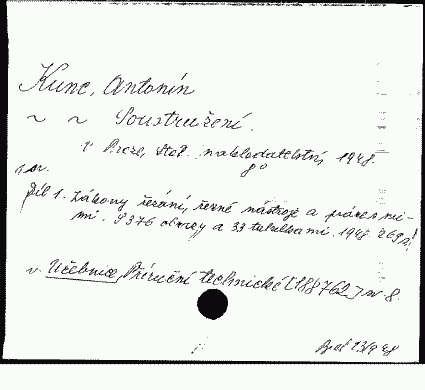 Kunc, Antonín
~ ~ Soustružení.
V Praze, Stát. nakladatelství, 1948.
8°
1 sv.
Díl 1. Zákony řezání, řezné nástroje a práce s ni-
mi. S 376 obrazy a 33 tabulkami. 1948. 269 s.
v. Učebnice, Příruční technické [188762] sv 8.
13/9 48